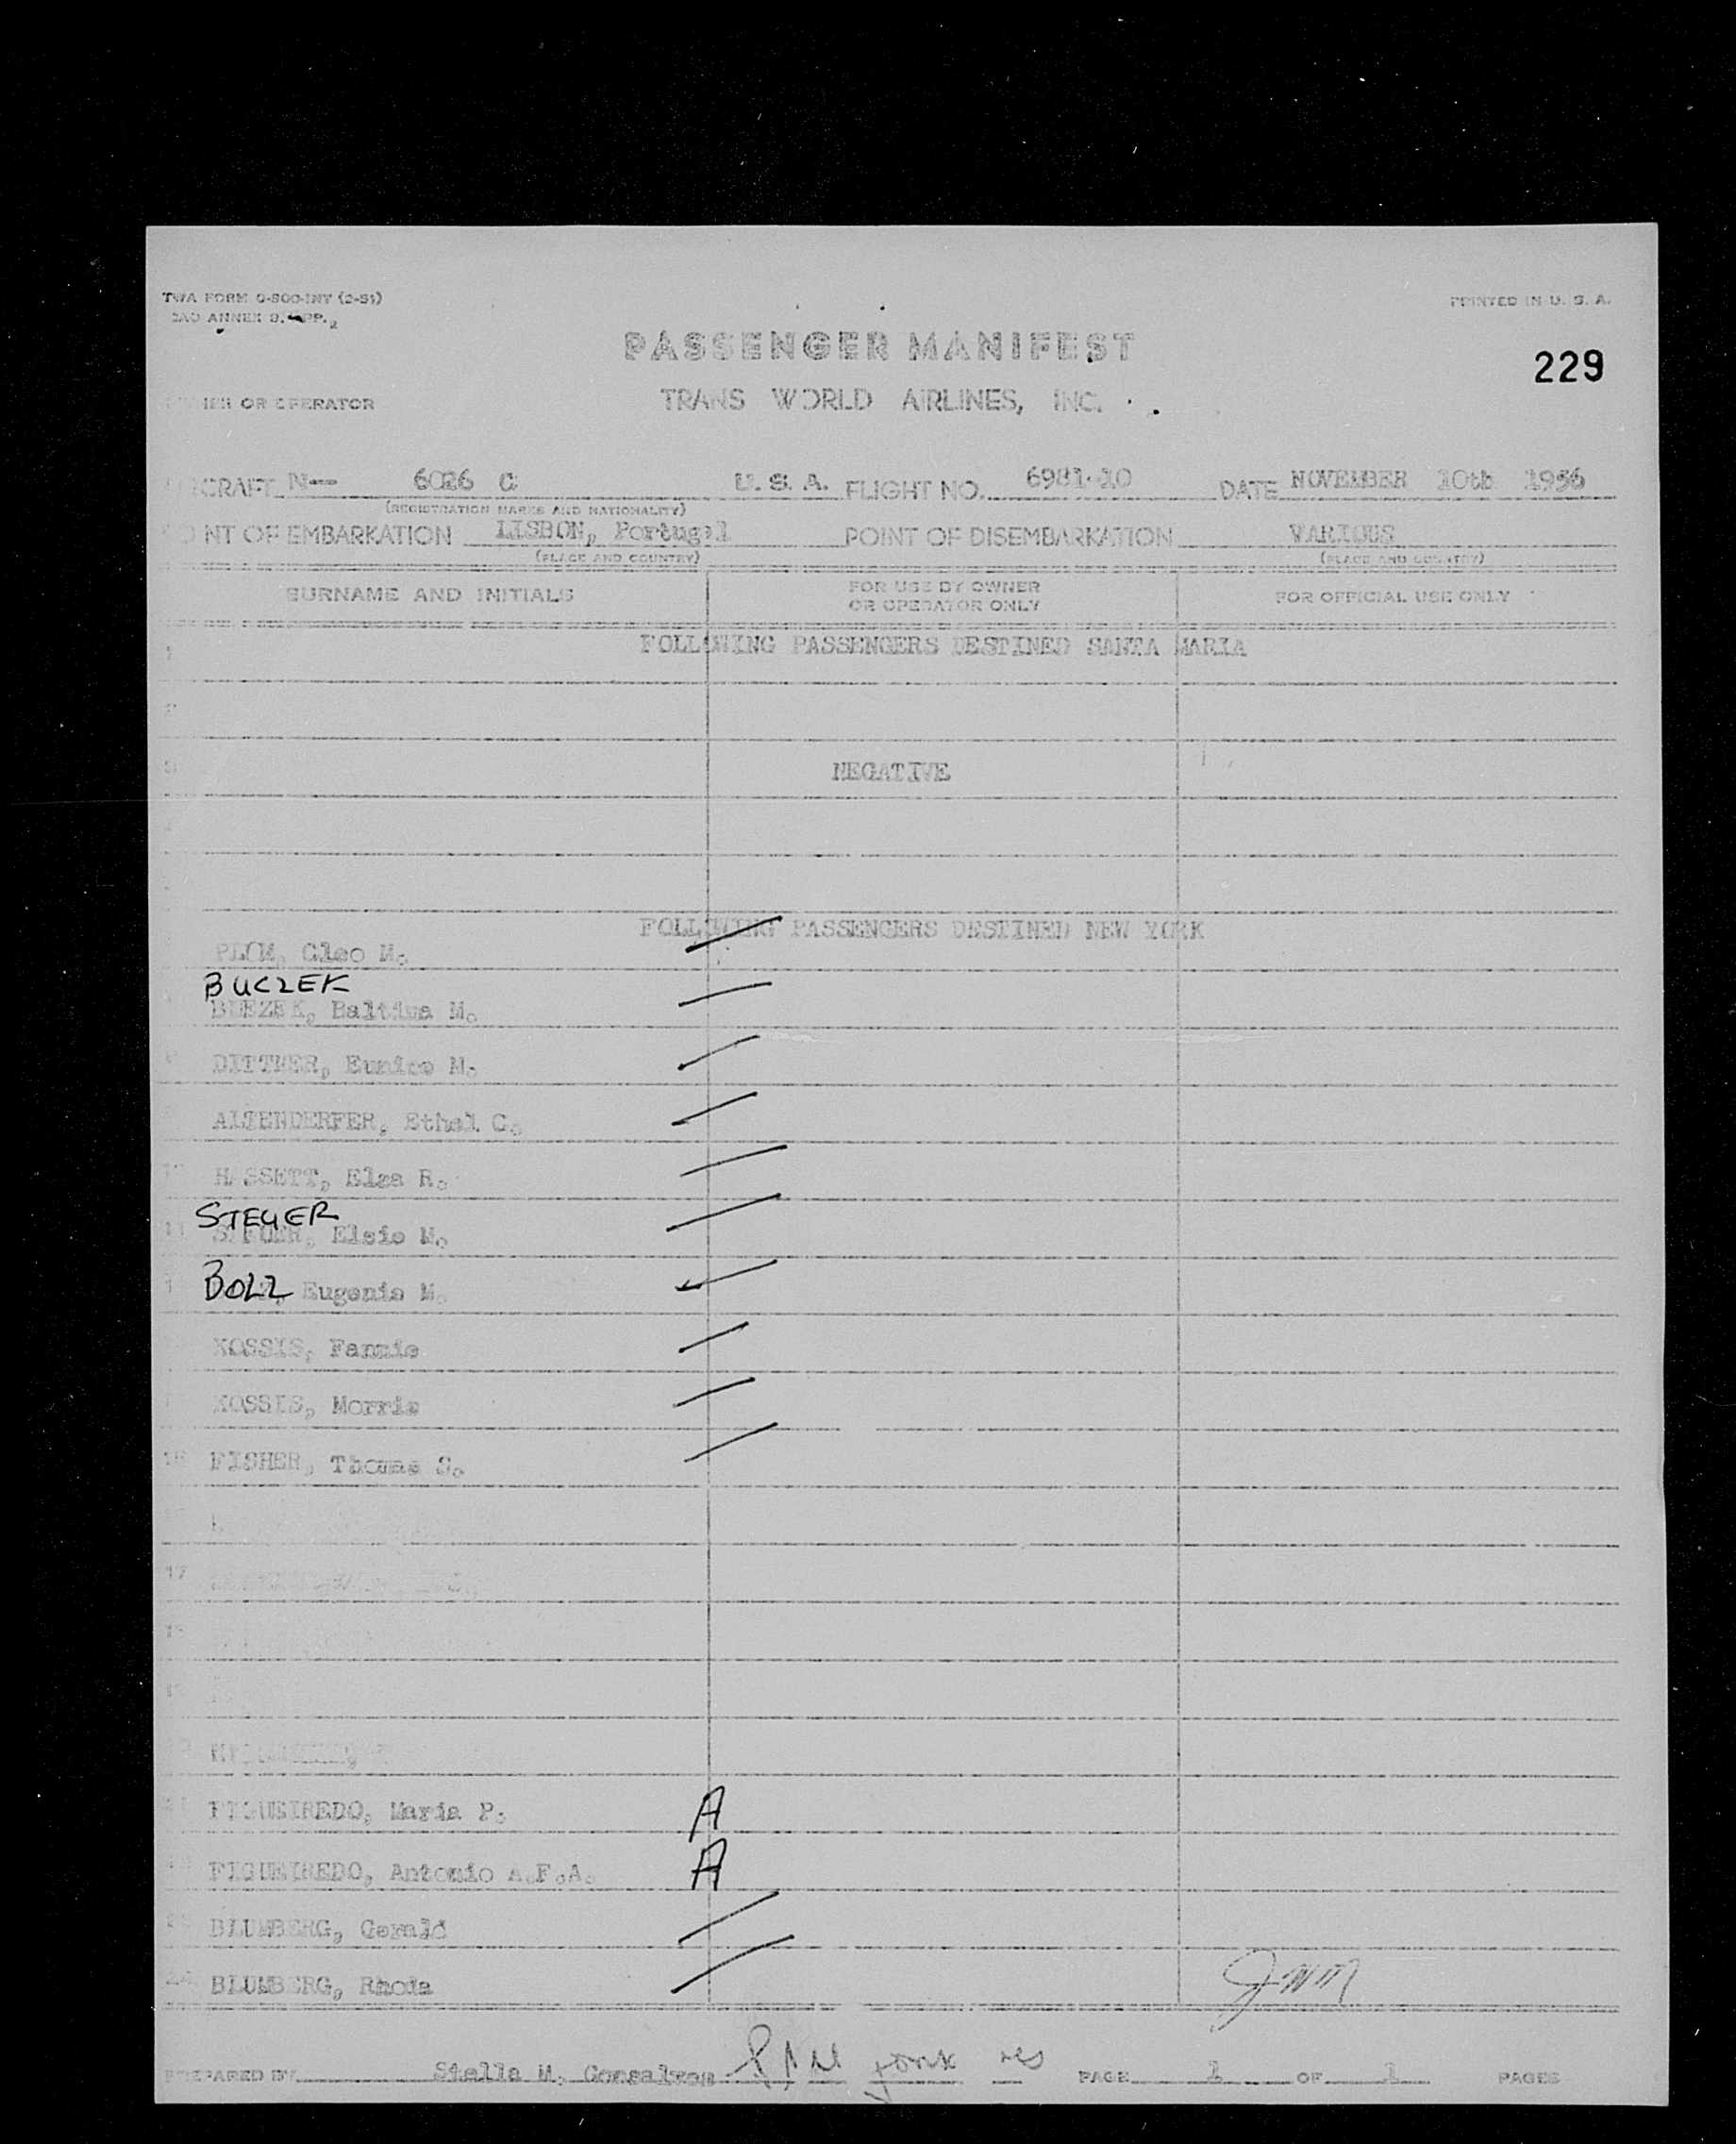 TWA FORM O-800-INT (2-51)
PRINTED IN U. S. A.
ANNEX 9.
PASSENGER MANIFEST
229
OR OPERATOR
TRANS WORLD AIRLINES, INC.
N-- 6026 C U.S.A. FLIGHT NO. 6981-10 DATE NOVEMBER 10th 1956
(REGISTRATION MARKS AND NATIONALITY)
NT OF EMBARKATION LISBON, Portugal POINT OF DISEMBARKATION VARIOUS
(PLACE AND COUNTRY) (PLACE AND COUNTRY)
SURNAME AND INITIALS
FOR USE BY OWNER
OR OPERATOR ONLY
FOR OFFICIAL USE ONLY
FOLLOWING PASSENGERS DESTINED SANTA MARIA
NEGATIVE
FOLLOWING PASSENGERS DESTINED NEW YORK
Cleo M.
BUCZEK
M.
DITTMER, Eunice M.
ALTENDERFER, Ethel C.
HASSETT, Elsa R.
STEYER
11 Elsie M.
BOLZ Eugenia M.
KOSSIS, Fannie
KOSSIS, Morris
FISHER, Thomas S.
17
FIGUEIREDO, Maria P. A
FIGUEIREDO, Antonio A.F.A. A
BLUMBERG, Gerald
BLUMBERG, Rhoda
PREPARED BY Stella M. Gonsalves PAGE 1 OF 1 PAGES